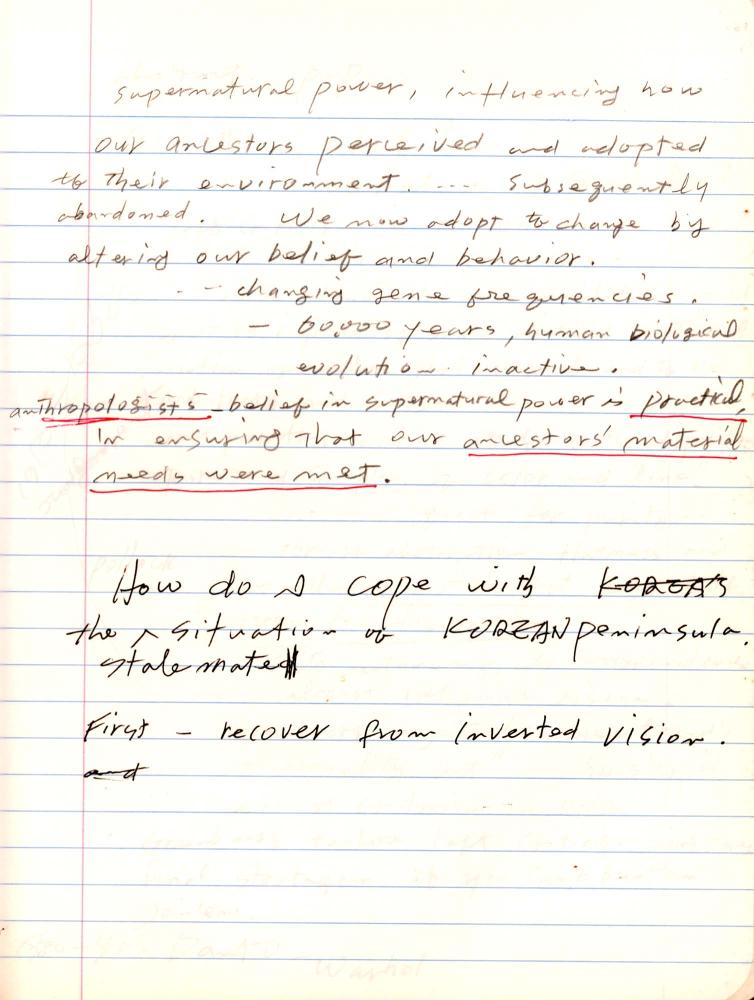 supernatural power, influencing how
our ancestors perceived and adopted
to their environment. --- Subsequently
abandoned. We now adopt to change by
altering our belief and behavior.
-- changing gene frequencies.
- 60,000 years, human biological
evolution inactive.
anthropologists - belief in supernatural power is practical,
In ensuring that our ancestors' material
needs were met.
How do I cope with KOREA'S
the situation of KOREAN peninsula.
stalemated
First - recover from inverted vision.
and